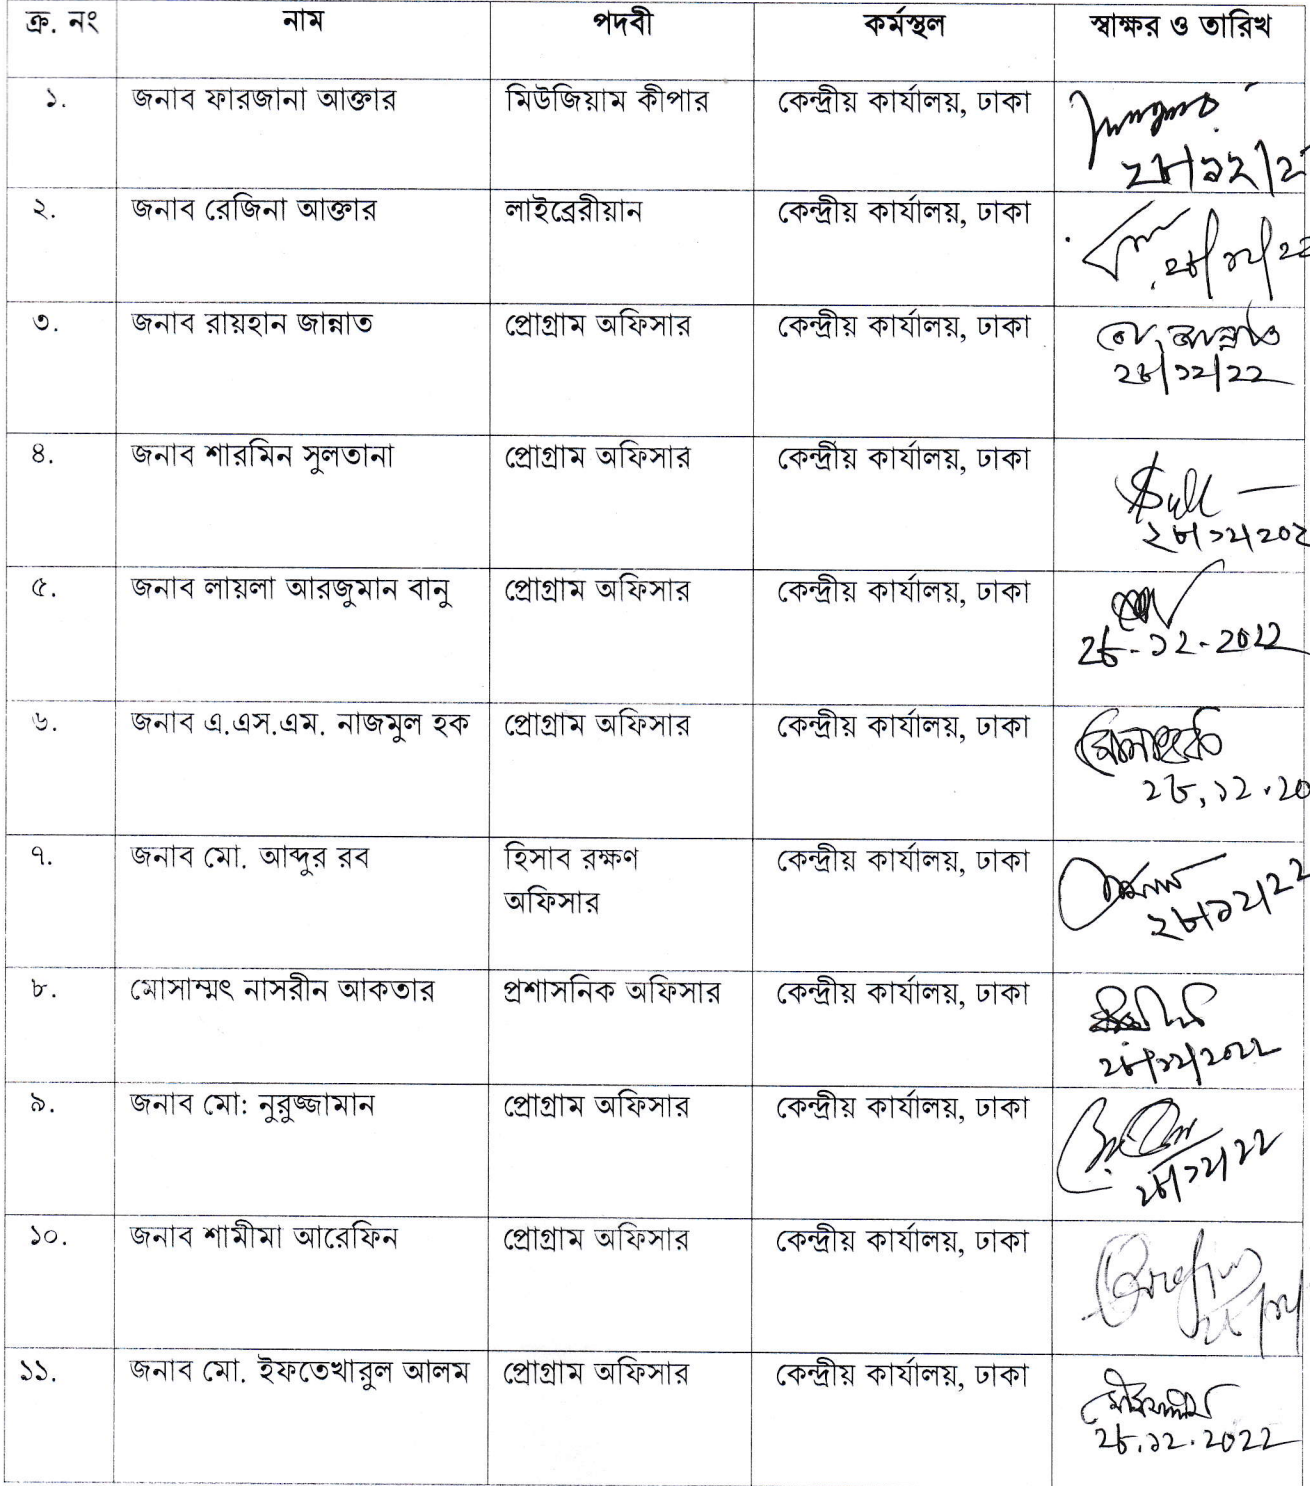 ক্র. নং নাম পদবী কর্মস্থল স্বাক্ষর ও তারিখ
১. জনাব ফারজানা আক্তার মিউজিয়াম কীপার কেন্দ্রীয় কার্যালয়, ঢাকা
২৮/১২/২
২. জনাব রেজিনা আক্তার লাইব্রেরীয়ান কেন্দ্রীয় কার্যালয়, ঢাকা
২৮/১২/২২
৩. জনাব রায়হান জান্নাত প্রোগ্রাম অফিসার কেন্দ্রীয় কার্যালয়, ঢাকা
২৮/১২/২২
৪. জনাব শারমিন সুলতানা প্রোগ্রাম অফিসার কেন্দ্রীয় কার্যালয়, ঢাকা
২৮/১২/২০২
৫. জনাব লায়লা আরজুমান বানু প্রোগ্রাম অফিসার কেন্দ্রীয় কার্যালয়, ঢাকা
২৮-১২-২০২২
৬. জনাব এ.এস.এম. নাজমুল হক প্রোগ্রাম অফিসার কেন্দ্রীয় কার্যালয়, ঢাকা
২৮.১২.২০
৭. জনাব মো. আব্দুর রব হিসাব রক্ষণ কেন্দ্রীয় কার্যালয়, ঢাকা
অফিসার
২৮/১২/২২
৮. মোসাম্মৎ নাসরীন আকতার প্রশাসনিক অফিসার কেন্দ্রীয় কার্যালয়, ঢাকা
২৮/১২/২০২২
৯. জনাব মো: নুরুজ্জামান প্রোগ্রাম অফিসার কেন্দ্রীয় কার্যালয়, ঢাকা
২৮/১২/২২
১০. জনাব শামীমা আরেফিন প্রোগ্রাম অফিসার কেন্দ্রীয় কার্যালয়, ঢাকা
১১. জনাব মো. ইফতেখারুল আলম প্রোগ্রাম অফিসার কেন্দ্রীয় কার্যালয়, ঢাকা
২৮.১২.২০২২